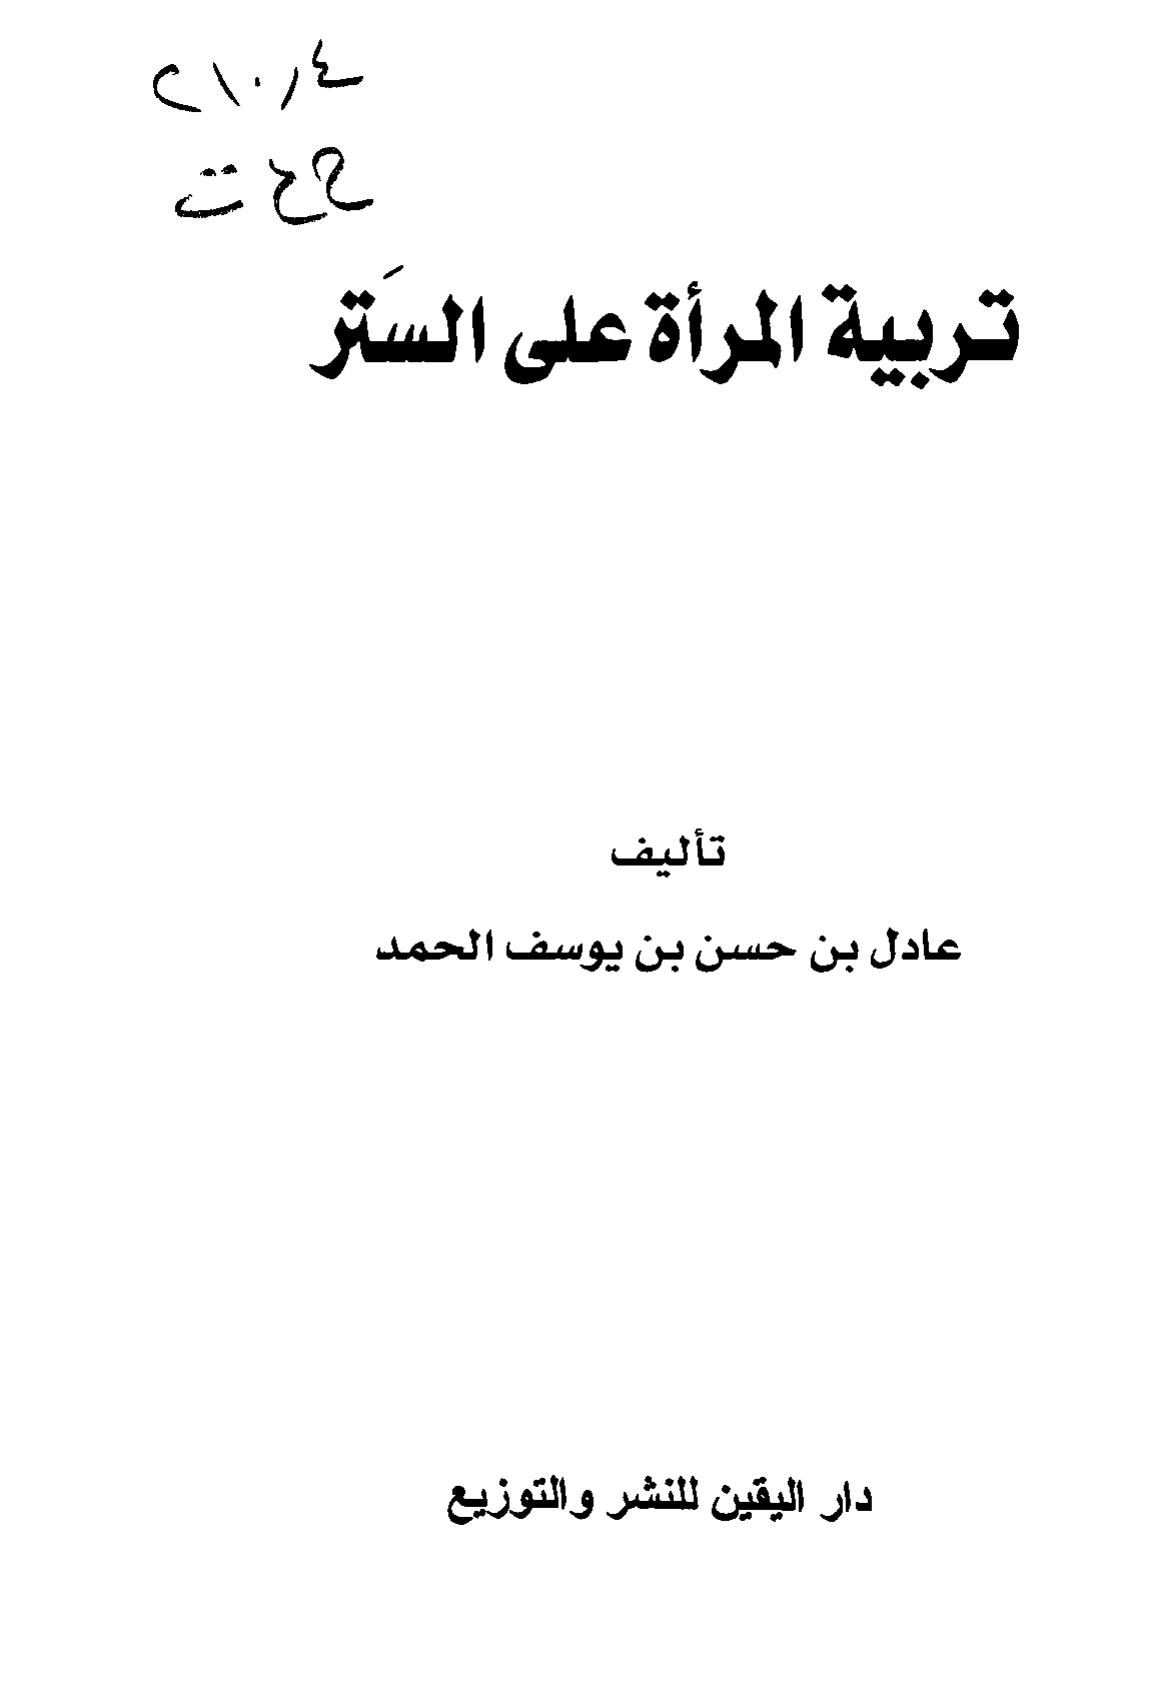 ٢١٠,٤
ح ع ت
تربية المرأة على الستَر
تأليف
عادل بن حسن بن يوسف الحمد
دار اليقين للنشر والتوزيع